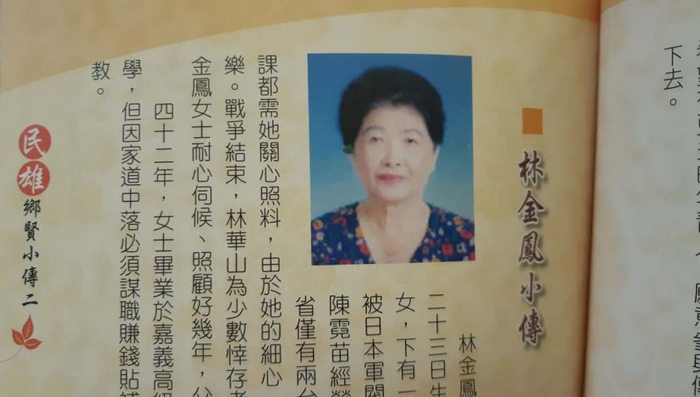 下去。
林金鳳小傳
林金鳳
二十三日生
女,下有一
被日本軍閥
陳霓苗經營
省僅有兩台
課都需她關心照料,由於她的細心
樂。戰爭結束,林華山為少數倖存者
金鳳女士耐心伺候、照顧好幾年,
四十二年,女士畢業於嘉義高級
學,但因家道中落必須謀職賺錢貼補
教。
民雄鄉賢小傳二